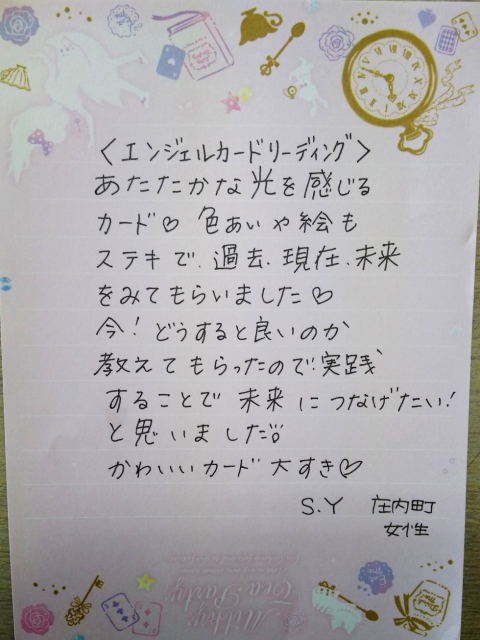 〈エンジェルカードリーディング〉
あたたかな光を感じる
カード♡ 色あいや絵も
ステキで、過去、現在、未来
をみてもらいました♡
今！どうすると良いのか
教えてもらったので実践
することで未来につなげたい！
と思いました
かわいいカード大すき♡
S.Y 庄内町
女性
Milky
Tea Party